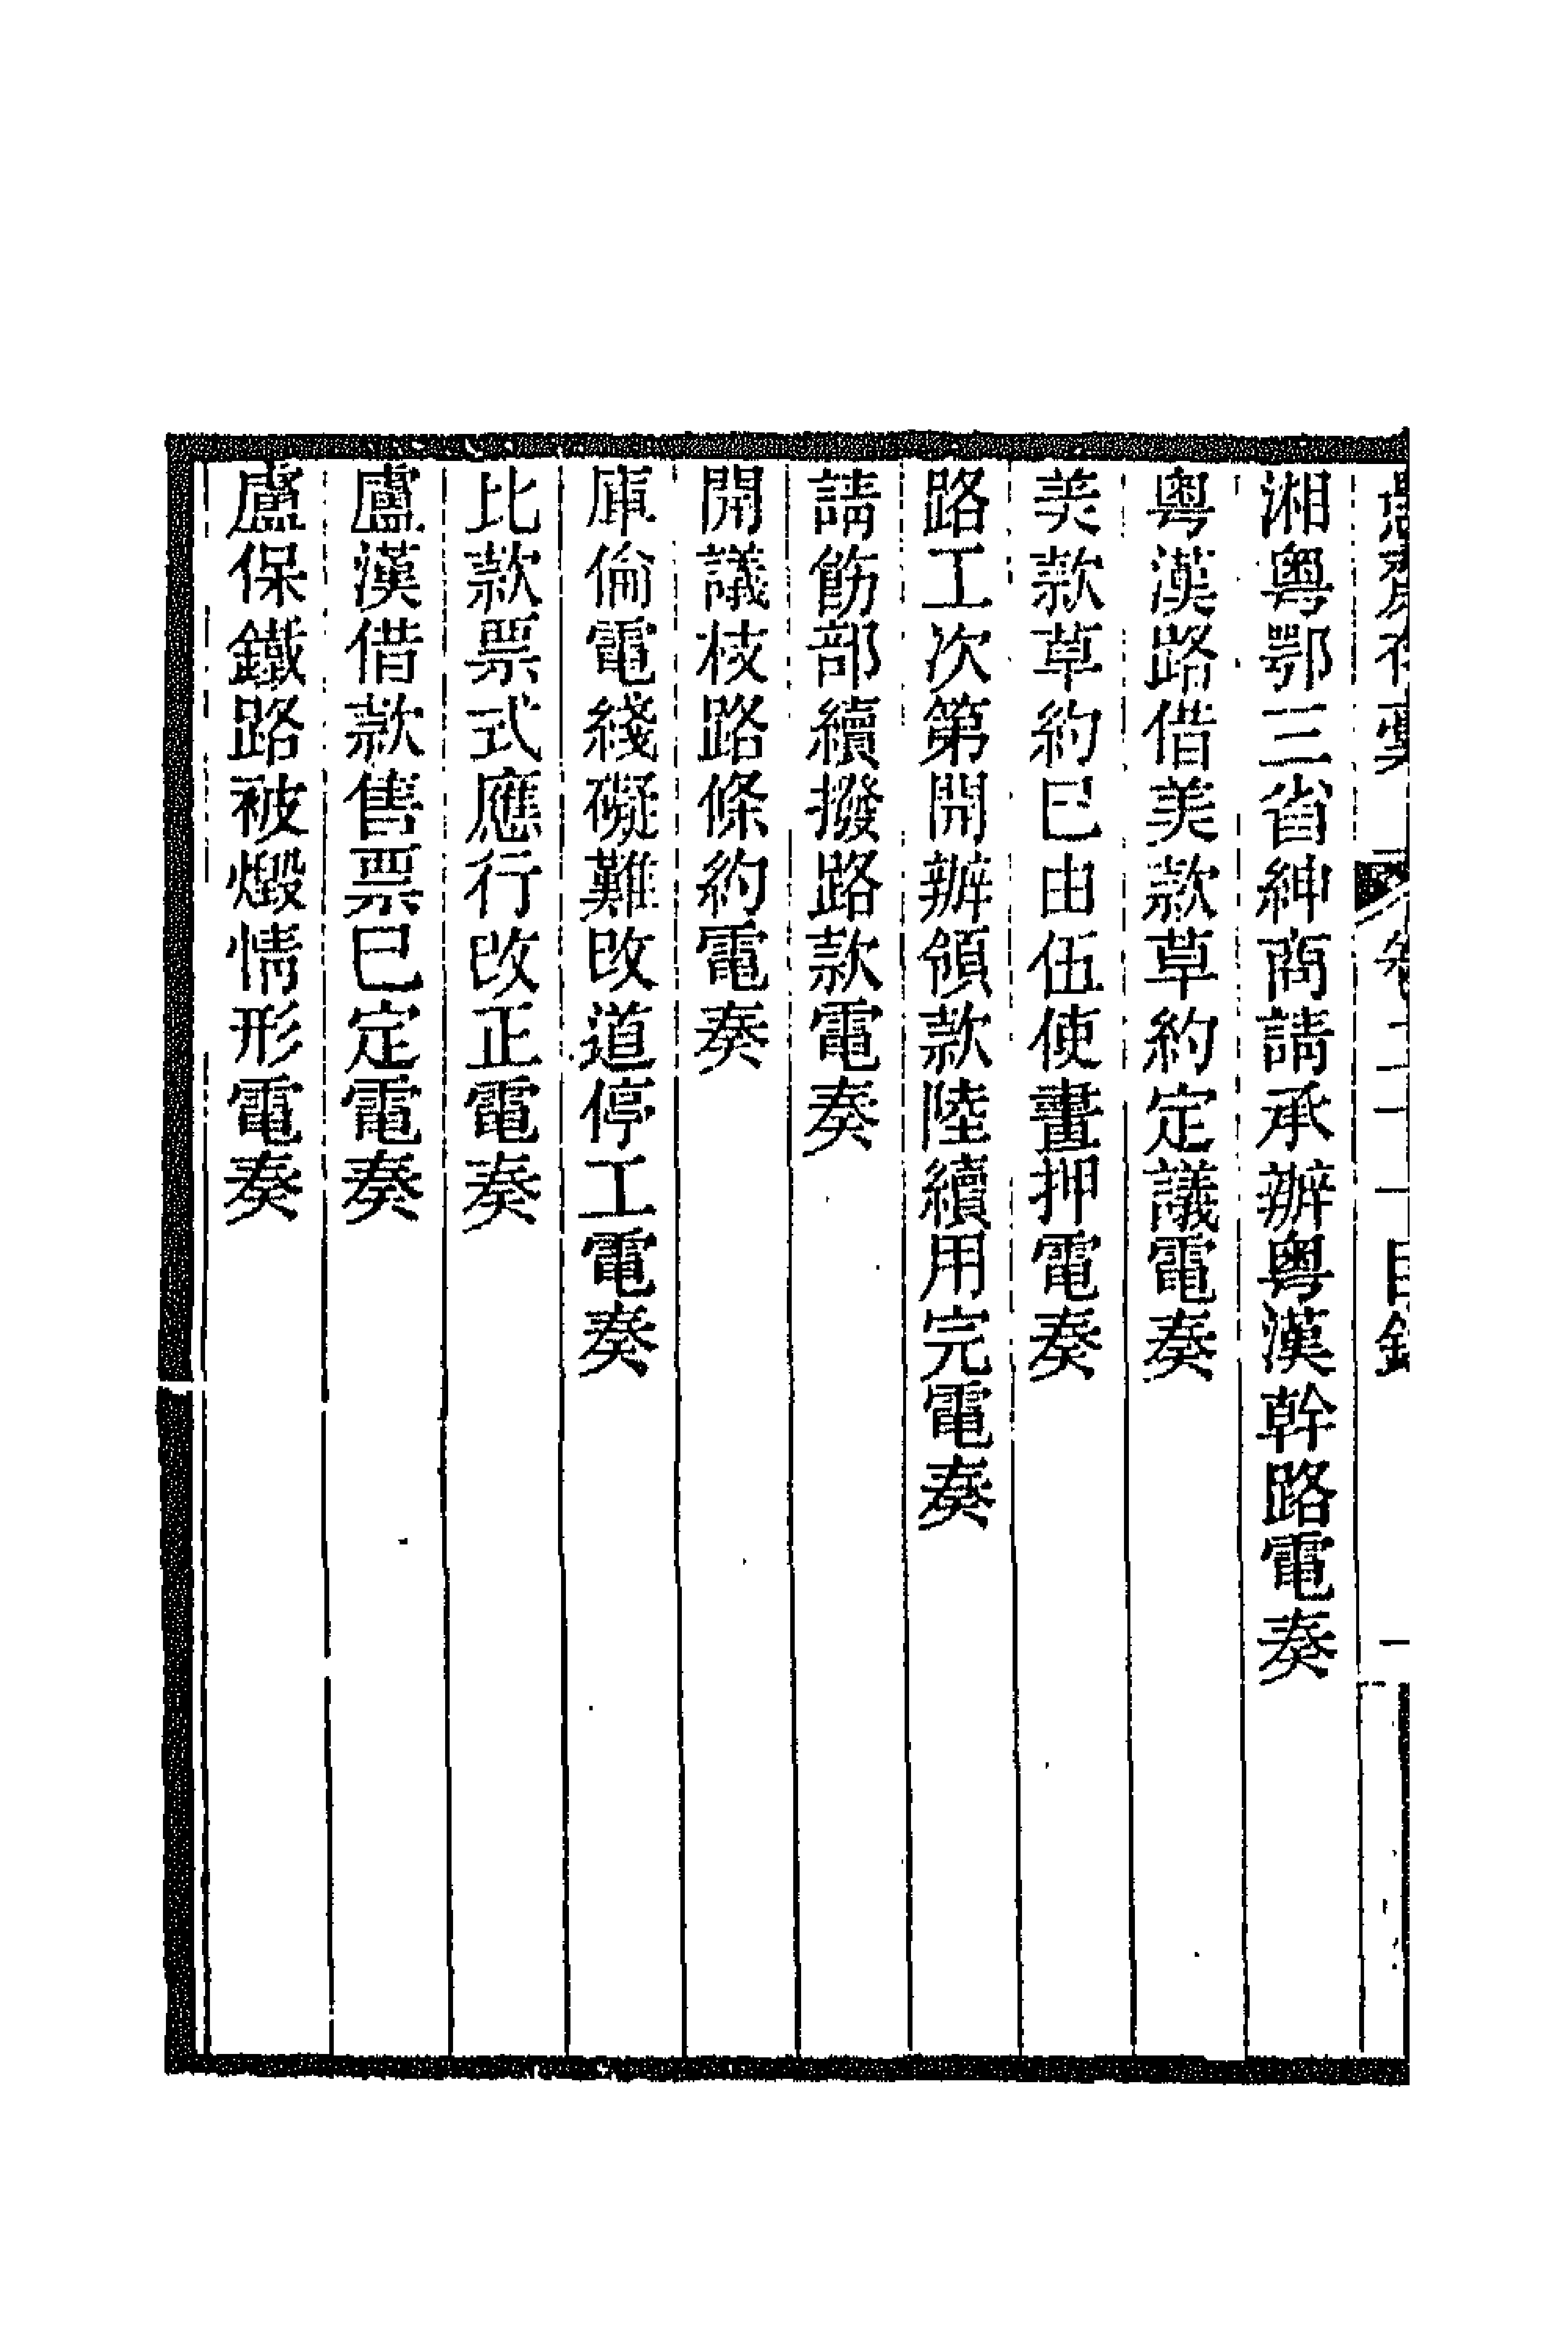 愚齋存稾 卷二十一目錄 一
湘粤鄂三省紳商請承辦粤漢幹路電奏
粤漢路借美款草約定議電奏
美款草約已由伍使畫押電奏
路工次第開辦領款陸續用完電奏
請飭部續撥路款電奏
開議枝路條約電奏
庫倫電綫礙難改道停工電奏
比款票式應行改正電奏
盧漢借款售票已定電奏
盧保鐵路被燬情形電奏